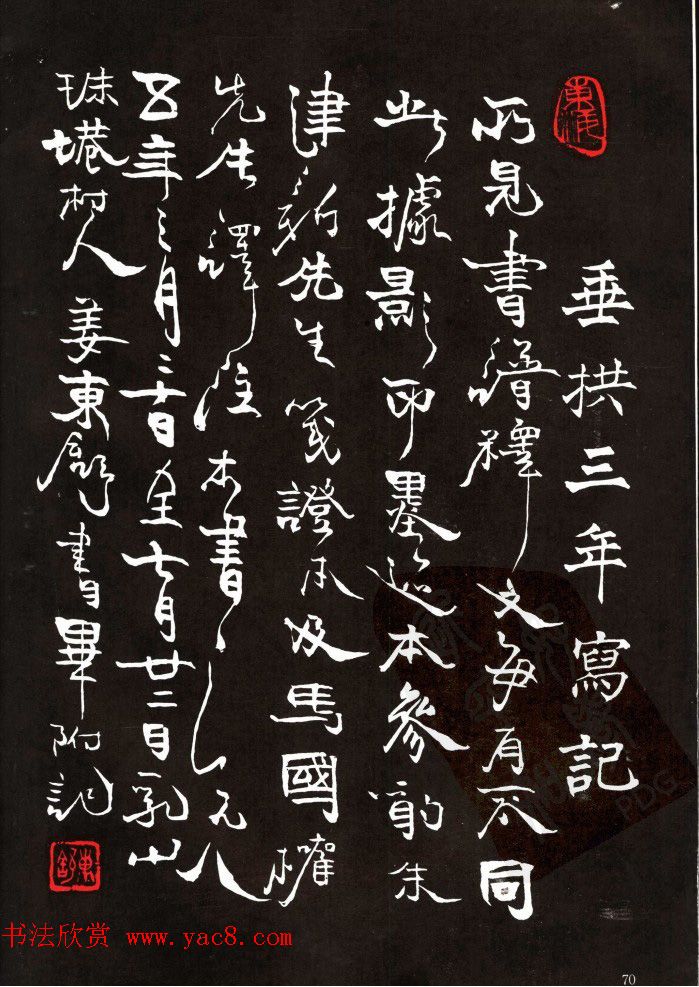 垂拱三年寫記
所見書譜釋文每有不同
此據影印墨迹本參酌朱
建新先生箋證本及馬國權
先生譯注本書之一九八
五年三月三日至七月廿二日乳山
珠塔村人姜東舒書畢附記
東舒
PDG
书法欣赏 www.yac8.com
70